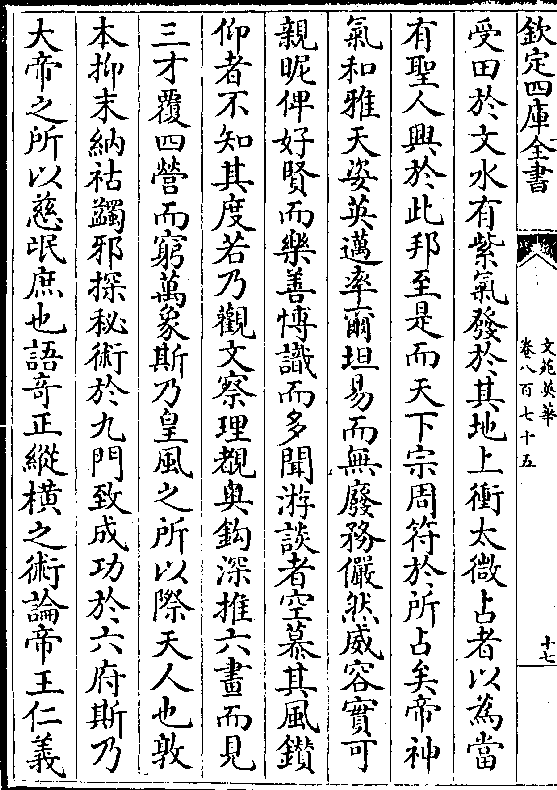 欽定四庫全書
文苑英華
卷八百七十五
十七
受田於文水有紫氣發於其地上衝太微占者以為當
有聖人興於此邦至是而天下宗周符於所占矣帝神
氣和雅天姿英邁率爾坦易而無廢務儼然威容實可
親昵俾好賢而樂善愽識而多聞游談者空慕其風鑚
仰者不知其度若乃觀文察理覩奥鈎深推六畫而見
三才覆四營而窮萬象斯乃皇風之所以際天人也敦
本抑末納祜蠲邪探秘術於九門致成功於六府斯乃
大帝之所以慈氓庶也語竒正縱横之術論帝王仁義